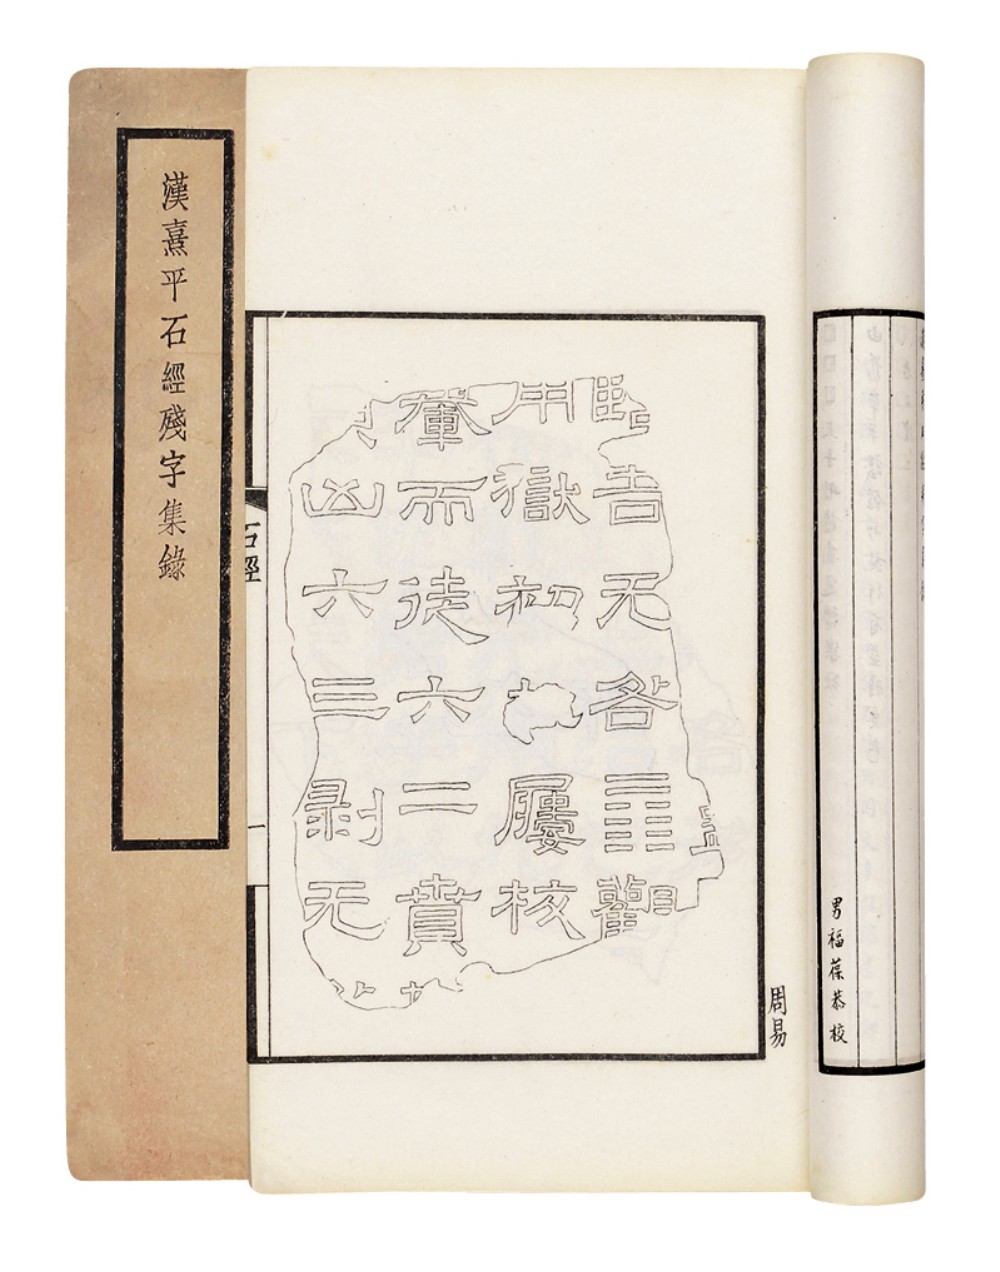 男福葆恭校
周易
臨吉无咎䷓觀
用獄初九屨校
而徒六二賁
凶六三剝无
石經
漢熹平石經殘字集錄